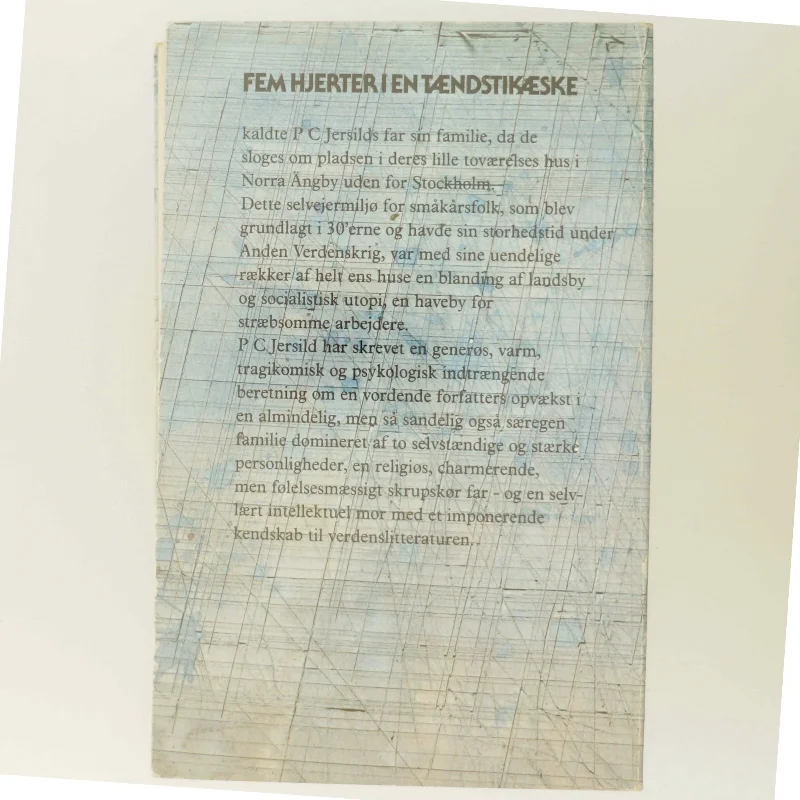 FEM HJERTER I EN TÆNDSTIKÆSKE
kaldte P C Jersilds far sin familie, da de
sloges om pladsen i deres lille toværelses hus i
Norra Ängby uden for Stockholm.
Dette selvejermiljø for småkårsfolk, som blev
grundlagt i 30'erne og havde sin storhedstid under
Anden Verdenskrig, var med sine uendelige
rækker af helt ens huse en blanding af landsby
og socialistisk utopi, en haveby for
stræbsomme arbejdere.
P C Jersild har skrevet en generøs, varm,
tragikomisk og psykologisk indtrængende
beretning om en vordende forfatters opvækst i
en almindelig, men så sandelig også særegen
familie domineret af to selvstændige og stærke
personligheder, en religiøs, charmerende,
men følelsesmæssigt skrupskør far - og en selv-
lært intellektuel mor med et imponerende
kendskab til verdenslitteraturen..